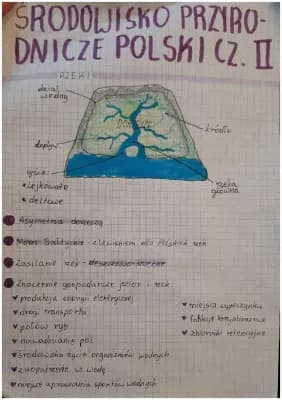 ŚRODOWISKO PRZYRO-
DNICZE POLSKI CZ. II
RZEKI
dział
wodny
DORZECZE
źródło
dopływ
ujście:
• lejkowate
• deltowe
rzeka
główna
Asymetria dorzeczy
Morze Bałtyckie - zlewiskiem dla rzek
Zasilanie rzek - deszczowo-śnieżne
Znaczenie gospodarcze jezior i rzek
produkcja energii elektrycznej
drogi transportu
połów ryb
nawadnianie pól
środowisko życia organizmów wodnych
zaopatrzenie w wodę
miejsce uprawiania sportów wodnych
miejsca wypoczynku
zbiorniki retencyjne